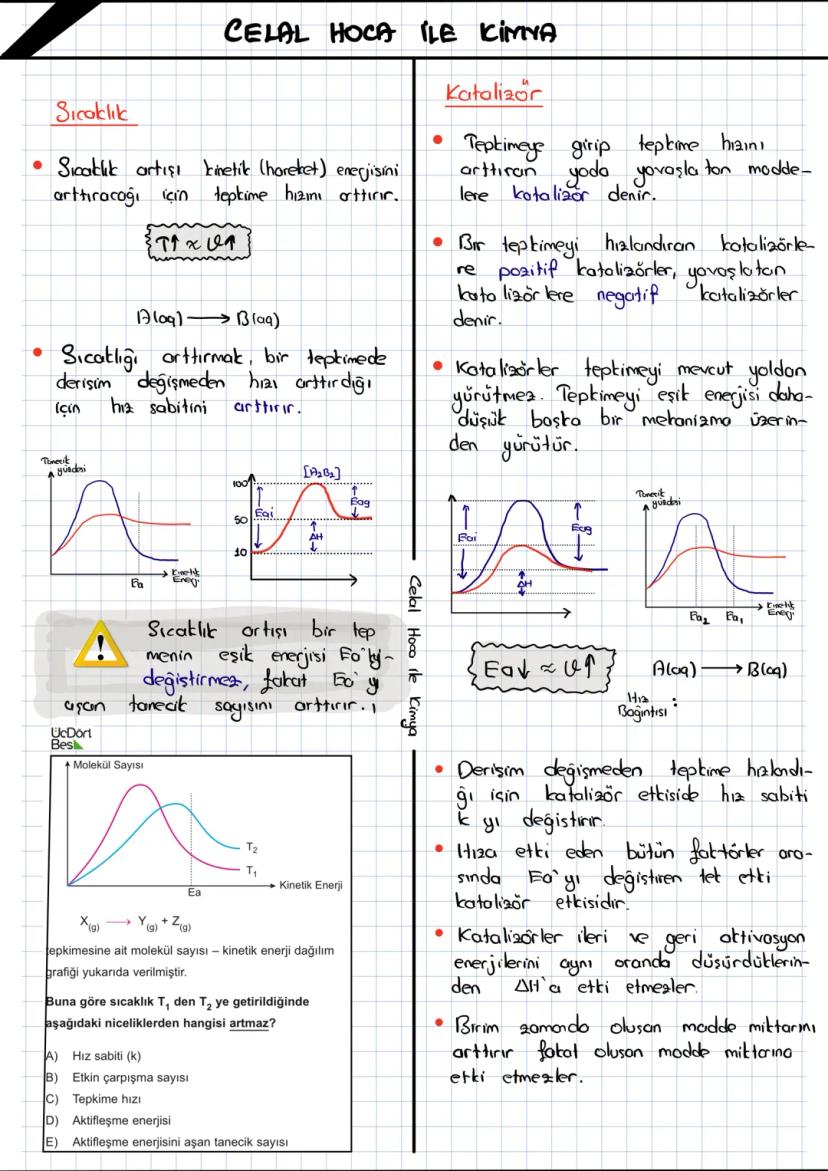 CELAL HOCA İLE KİMYA
Sıcaklık
• Sıcaklık artışı kinetik (hareket) enerjisini
arttıracağı için tepkime hızını arttırır.
T↑ ≈ ϑ↑
A(aq) → B(aq)
• Sıcaklığı arttırmak, bir tepkimede
derişim değişmeden hızı arttırdığı
için hız sabitini arttırır.
Tanecik
yüzdesi
Ea
Kinetik
Enerji
[A₂B₂]
100
50
10
Eai
Eag
ΔH
Sıcaklık artışı bir tep
menin eşik enerjisi Ea'yı
değiştirmez, fakat Ea'yı
aşan tanecik sayısını arttırır.
ÜcDört
Bes
Molekül Sayısı
T₂
T₁
Ea
Kinetik Enerji
X(g) → Y(g) + Z(g)
tepkimesine ait molekül sayısı – kinetik enerji dağılım
grafiği yukarıda verilmiştir.
Buna göre sıcaklık T₁ den T₂ ye getirildiğinde
aşağıdaki niceliklerden hangisi artmaz?
A) Hız sabiti (k)
B) Etkin çarpışma sayısı
C) Tepkime hızı
D) Aktifleşme enerjisi
E) Aktifleşme enerjisini aşan tanecik sayısı
Celal Hoca ile Kimya
Katalizör
• Tepkimeye girip tepkime hızını
arttıran yada yavaşlatan madde-
lere katalizör denir.
• Bir tepkimeyi hızlandıran katalizörle-
re pozitif katalizörler, yavaşlatan
katalizörlere negatif katalizörler
denir.
• Katalizörler tepkimeyi mevcut yoldan
yürütmez. Tepkimeyi eşik enerjisi daha-
düşük başka bir mekanizma üzerin-
den yürütür.
Eai
Eag
ΔH
Tanecik
yüzdesi
Ea₂ Ea₁
Kinetik
Enerji
Ea↓ ≈ ϑ↑
A(aq) → B(aq)
Hız
Bağıntısı :
• Derişim değişmeden tepkime hızlandı-
ğı için katalizör etkiside hız sabiti
k yı değiştirir.
• Hıza etki eden bütün faktörler ara-
sında Ea'yı değiştiren tek etki
katalizör etkisidir.
• Katalizörler ileri ve geri aktivasyon
enerjilerini aynı oranda düşürdüklerin-
den ΔH'a etki etmezler.
• Birim zamanda oluşan madde miktarını
arttırır fakat oluşan madde miktarına
etki etmezler.